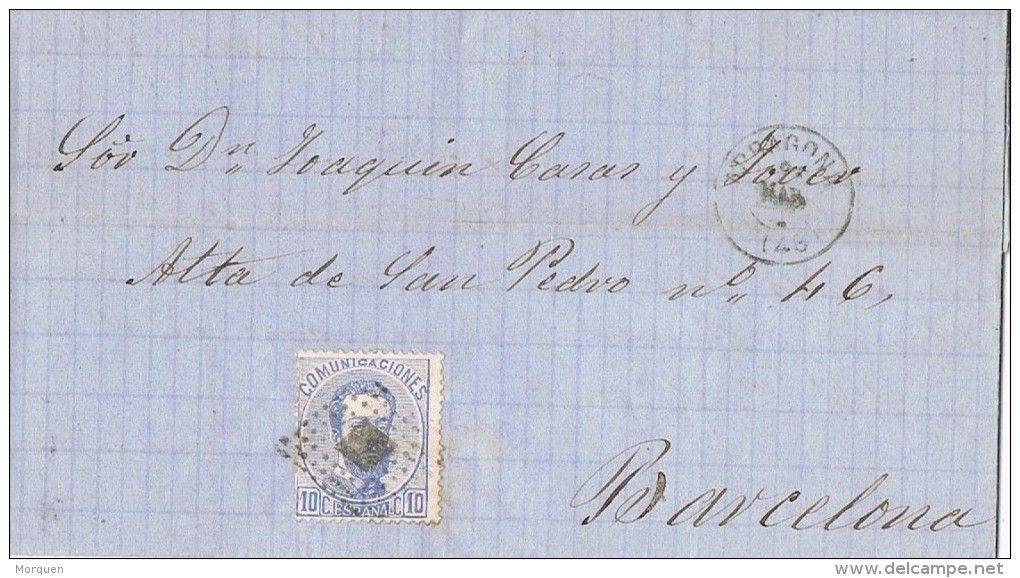 Sor Dn Joaquin Casas y Jover
Alta de San Pedro nº 46,
Barcelona
COMUNICACIONES
10 C. ESPAÑA C 10
MAR
Morquen
www.delcampe.net